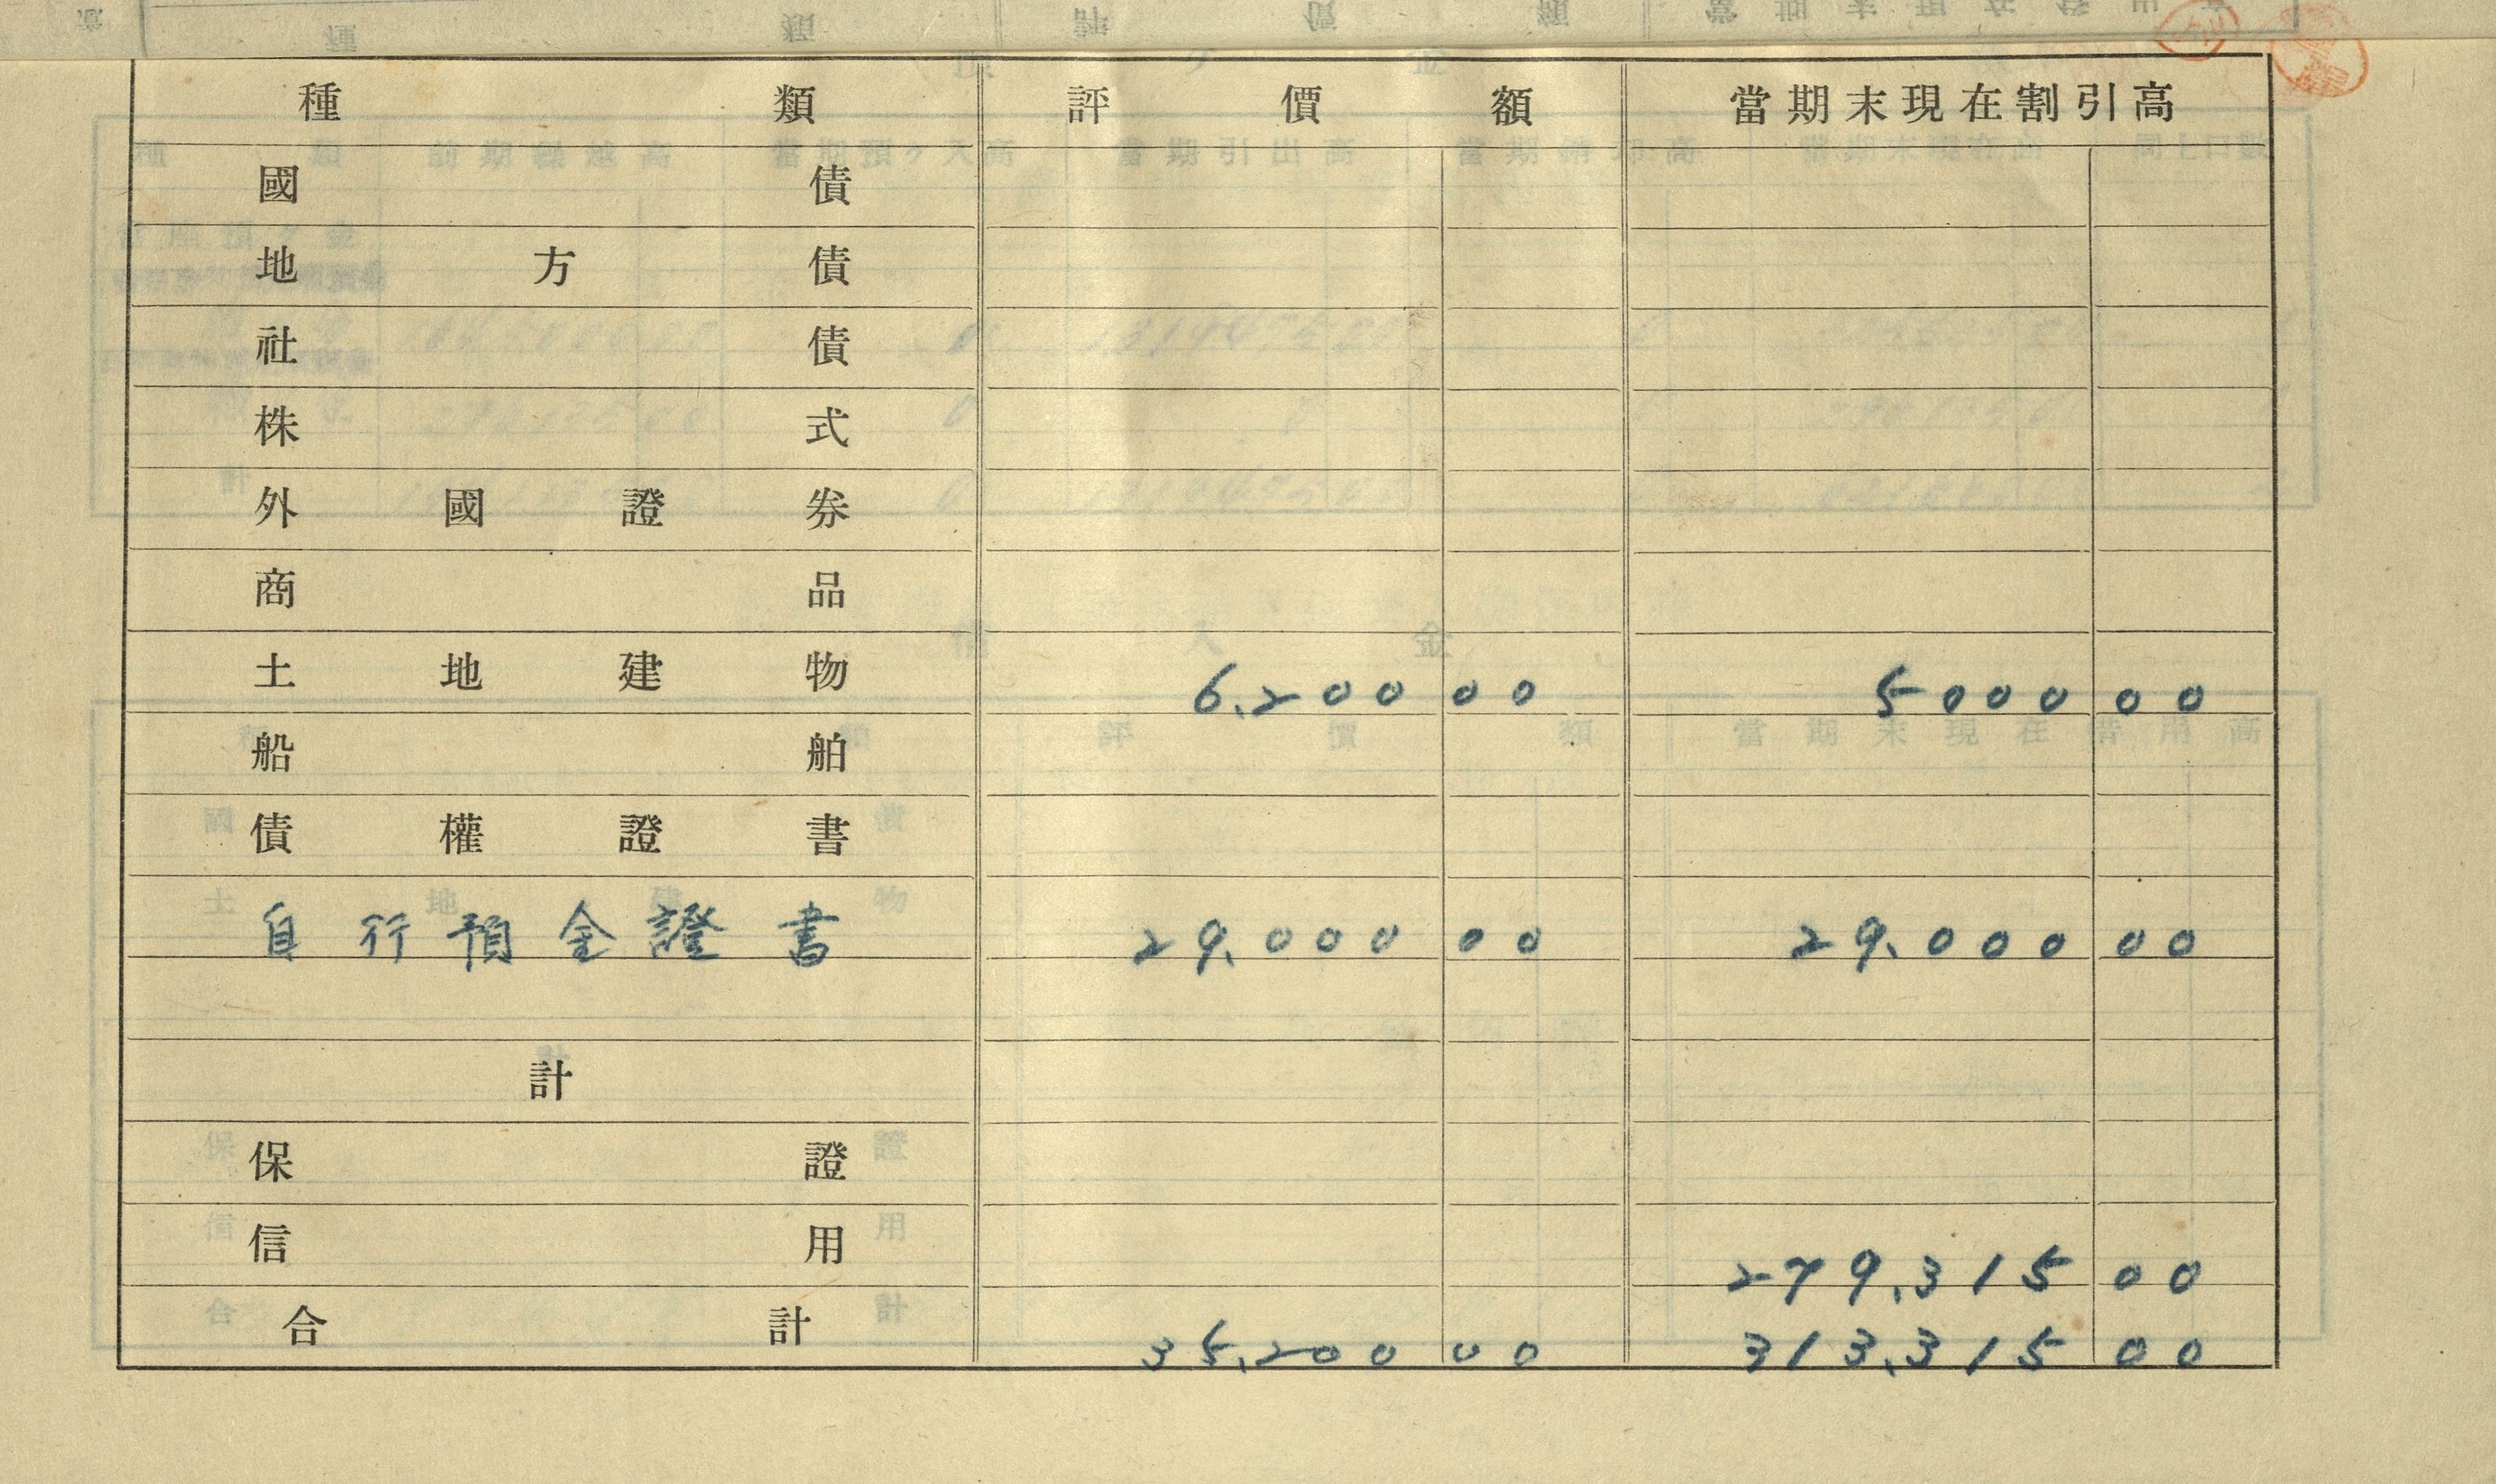 種類 評價額 當期末現在割引高
國債
地方債
社債
株式
外國證券
商品
土地建物 6,200 00 5000 00
船舶
債權證書
自行預金證書 29,000 00 29,000 00
計
保證
信用 279,315 00
合計 35,200 00 313,315 00